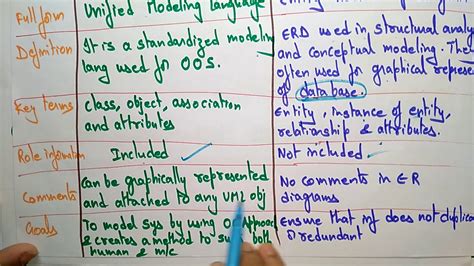 Full form
Unified Modeling Language
Definition
It is a standardized modeling
lang used for OOS.
ERD used in structural analy
and conceptual modeling. The
often used for graphical repres
of database.
Key terms
class, object, association
and attributes
Entity, instance of entity,
relationship & attributes.
Role information
Included
Not included
Comments
can be graphically represented
and attached to any UML obj
No comments in ER
diagrams
Goals
To model sys by using
& creates a method to both
human & m/c
Ensure that inf does not duplica
redundant